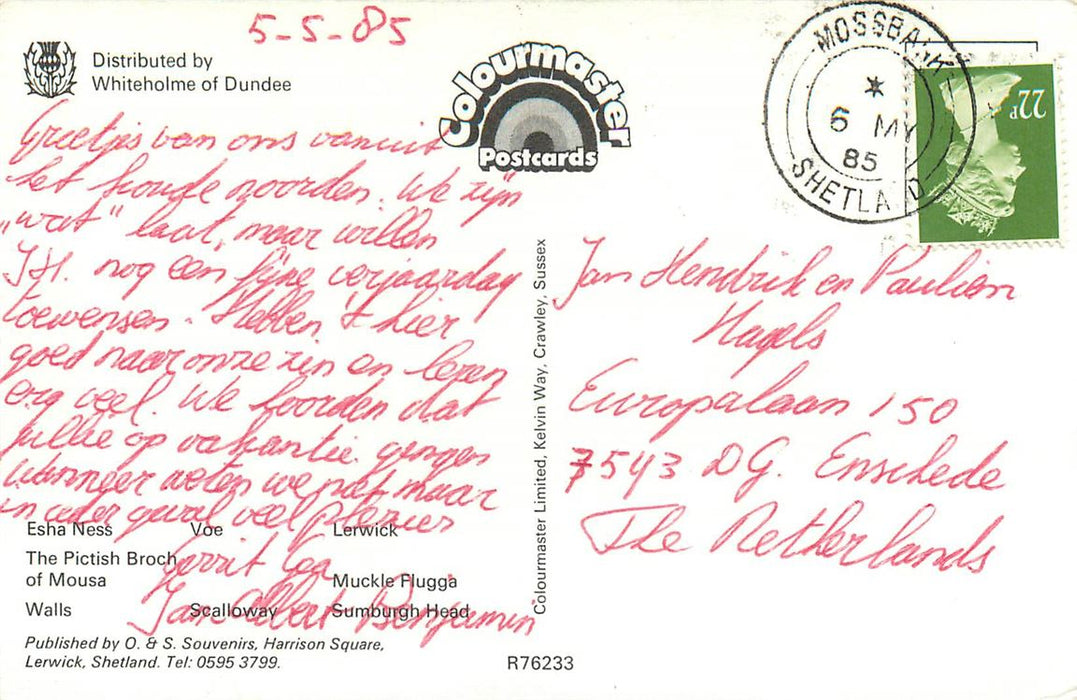 5-5-85
Distributed by
Whiteholme of Dundee
Colourmaster
Postcards
MOSSBANK
6 MY
85
SHETLAND
22P
Greetjes van ons vanuit
het koude noorden. We zijn
„wat” laat, maar willen
J.H. nog een fijne verjaardag
toewensen. Hebben 't hier
goed naar onze zin en leren
erg veel. We hoorden dat
jullie op vakantie gingen
wanneer weten we niet maar
in ieder geval veel plezier
Gerrit Gea
Jan Albert Benjamin
Esha Ness Voe Lerwick
The Pictish Broch
of Mousa Muckle Flugga
Walls Scalloway Sumburgh Head
Published by O. & S. Souvenirs, Harrison Square,
Lerwick, Shetland. Tel: 0595 3799.
R76233
Colourmaster Limited, Kelvin Way, Crawley, Sussex
Jan Hendrik en Paulien
Hagels
Europalaan 150
7543 DG. Enschede
The Netherlands